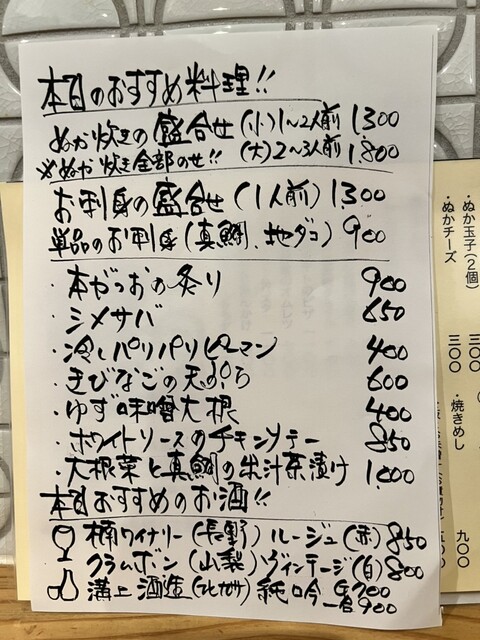 本日のおすすめ料理!!
ぬか炊きの盛合せ (小)1~2人前 1,300
※ぬか炊き全部のせ!! (大)2~3人前 1,800
お刺身の盛合せ(1人前) 1,300
単品のお刺身(真鯛、地ダコ) 900
・本がつおの炙り 900
・シメサバ 850
・冷しパリパリピーマン 400
・きびなごの天ぷら 600
・ゆず味噌大根 400
・ホワイトソースのチキンソテー 850
・大根菜と真鯛の出汁茶漬け 1,000
本日おすすめのお酒!!
楠ワイナリー(長野)ルージュ(赤) 850
クラムボン(山梨)ヴィンテージ(白) 800
溝上酒造 純吟 G700
一合900
・ぬか玉子(2個) 300
・ぬかチーズ 300
・焼きめし 900